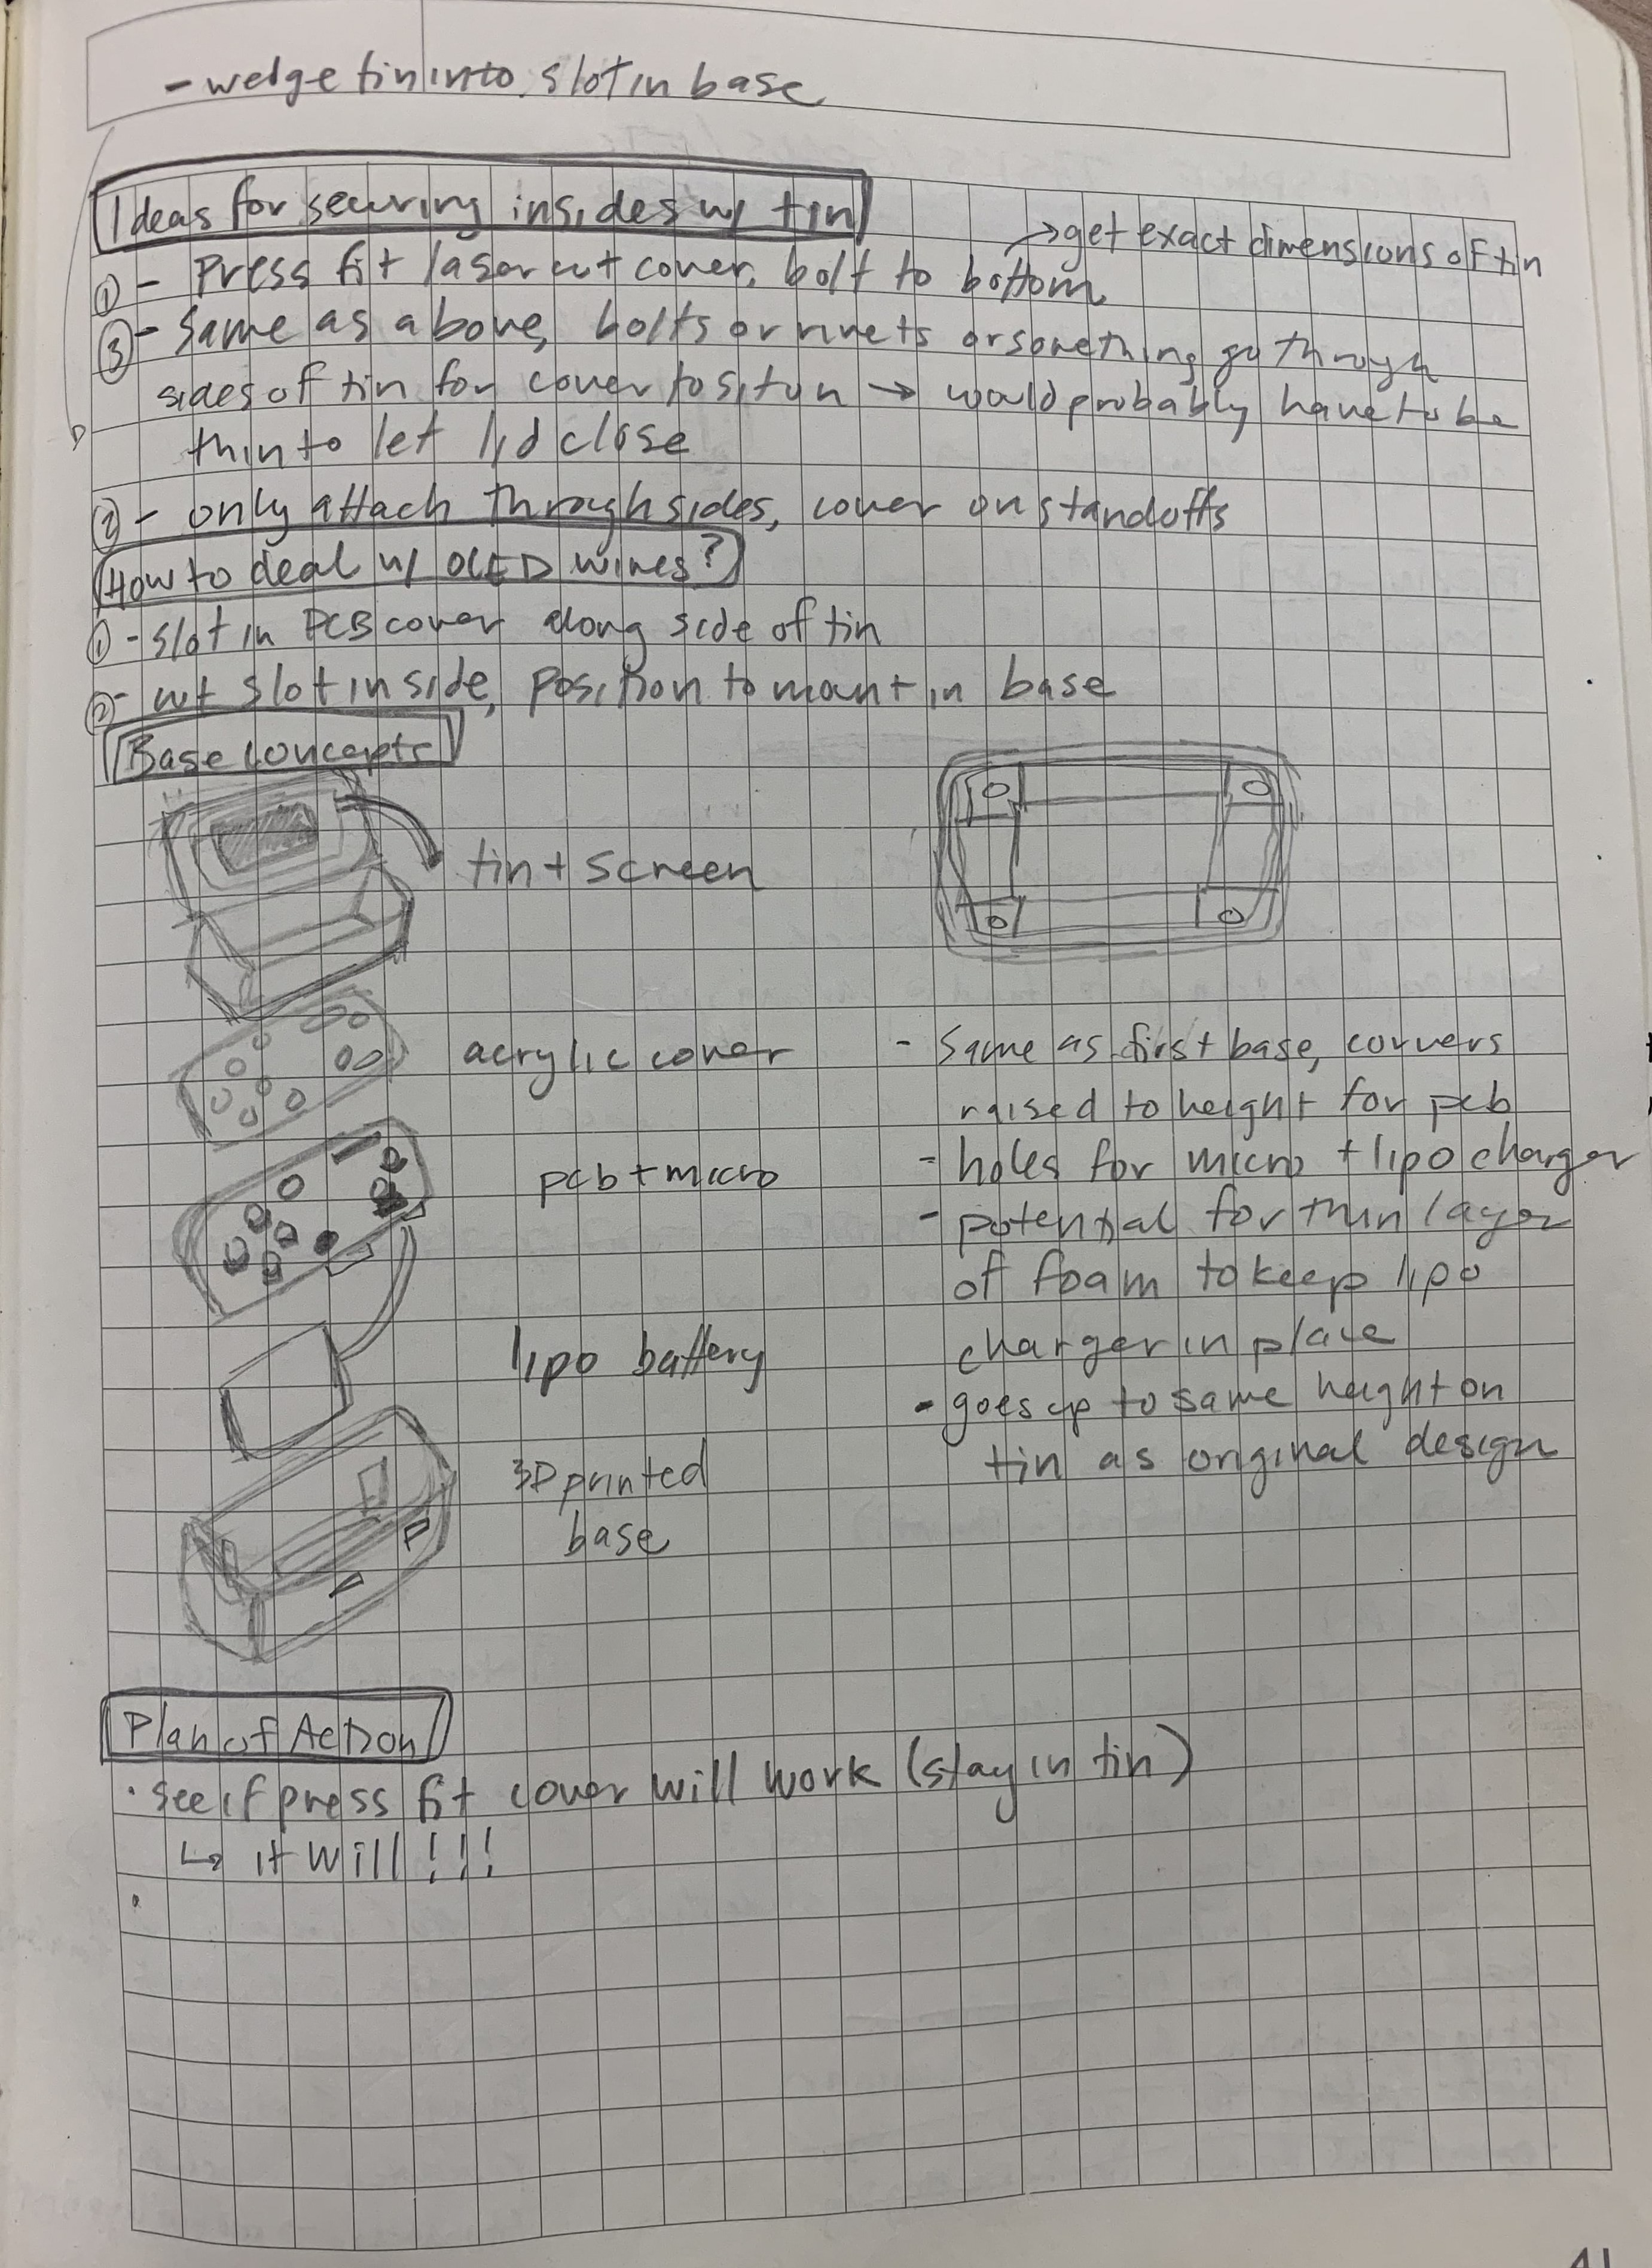 - wedge tin into slot in base
Ideas for securing insides w/ tin
→ get exact dimensions of tin
① - Press fit laser cut cover, bolt to bottom
③ - same as above, bolts or rivets or something go through
sides of tin for cover to sit on → would probably have to be
thin to let lid close
② - only attach through sides, cover on standoffs
How to deal w/ OLED wires?
① - slot in PCB cover along side of tin
② - cut slot in side, position to mount in base
Base concepts
tin + screen
acrylic cover
pcb + micro
lipo battery
3D printed
base
- same as first base, corners
raised to height for pcb
- holes for micro + lipo charger
- potential for thin layer
of foam to keep lipo
charger in place
- goes up to same height on
tin as original design
Plan of Action
· see if press fit cover will work (stay in tin)
↳ it will!!!
·
41